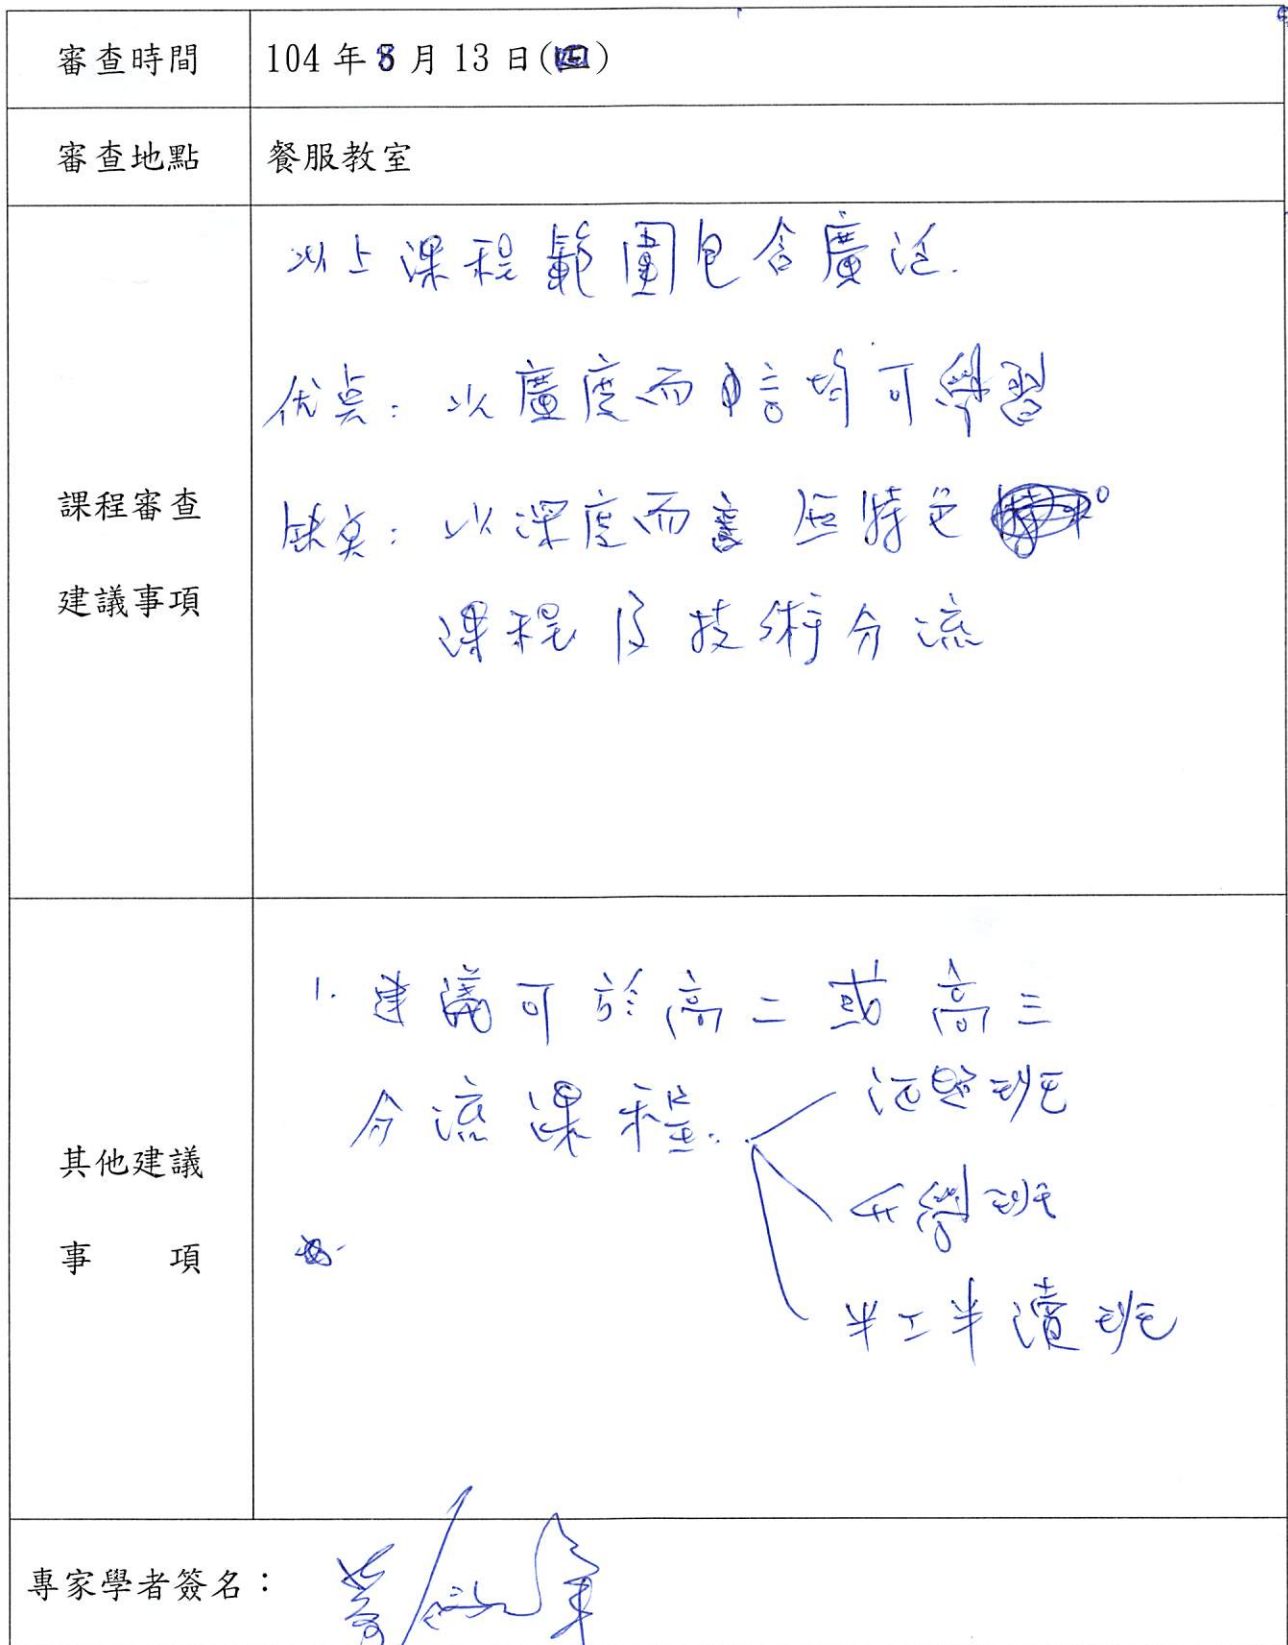 審查時間 104年8月13日(四)
審查地點 餐服教室
課程審查
建議事項
以上課程範圍包含廣泛.
优点：以廣度而言均可學習
缺点：以深度而言 無特色。
課程及技術分流
其他建議
事 項
1. 建議可於高二或高三
分流課程.
證照班
升學班
半工半讀班
專家學者簽名：